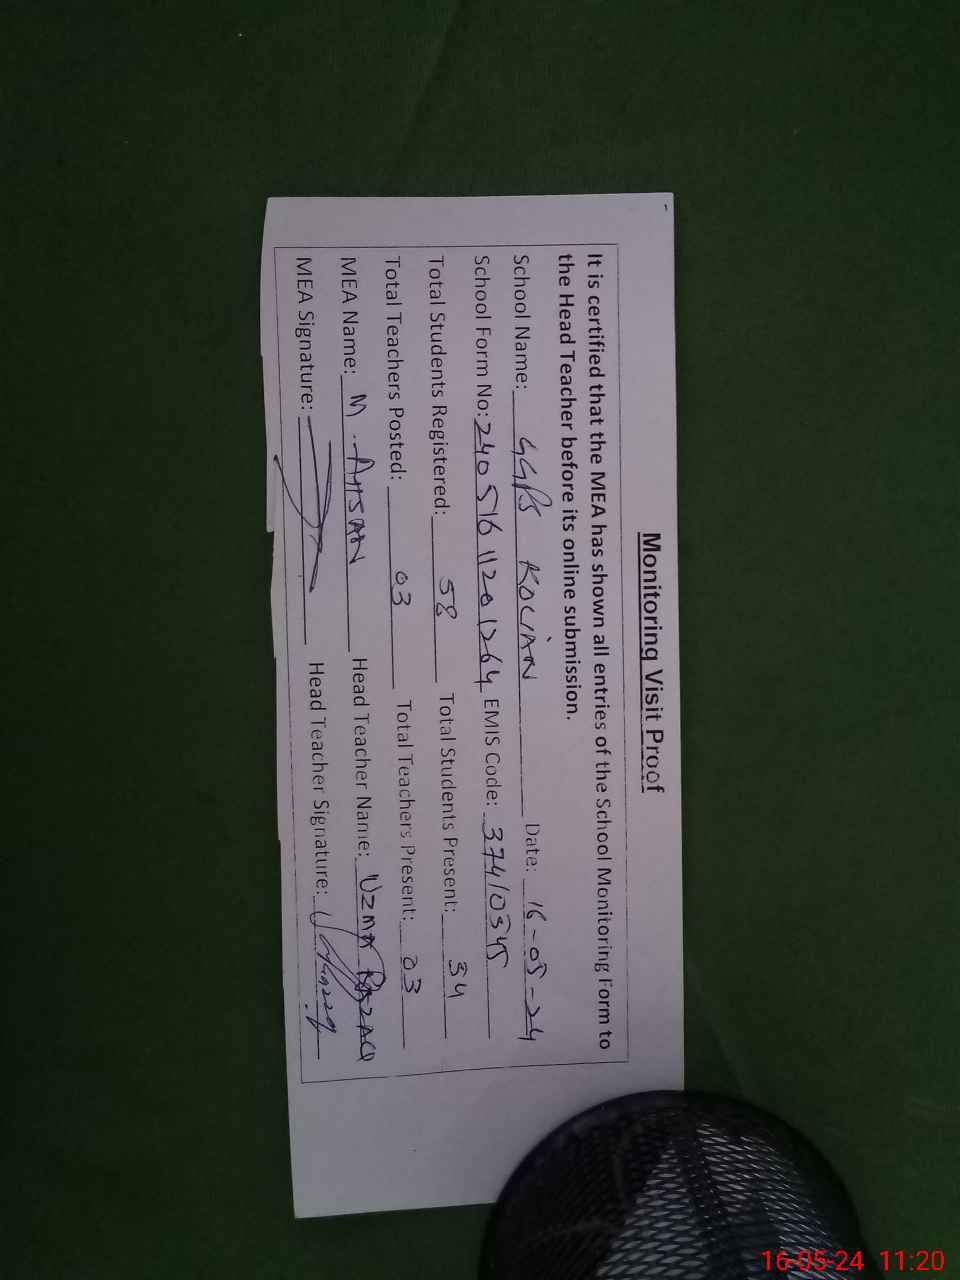 Monitoring Visit Proof
It is certified that the MEA has shown all entries of the School Monitoring Form to
the Head Teacher before its online submission.
School Name: GGPS KOLIAN Date: 16-05-24
School Form No: 24051611201264 EMIS Code: 37410345
Total Students Registered: 58 Total Students Present: 34
Total Teachers Posted: 03 Total Teachers Present: 03
MEA Name: M. AHSAN Head Teacher Name: UZMA RAZAQ
MEA Signature: Head Teacher Signature:
16-05-24 11:20